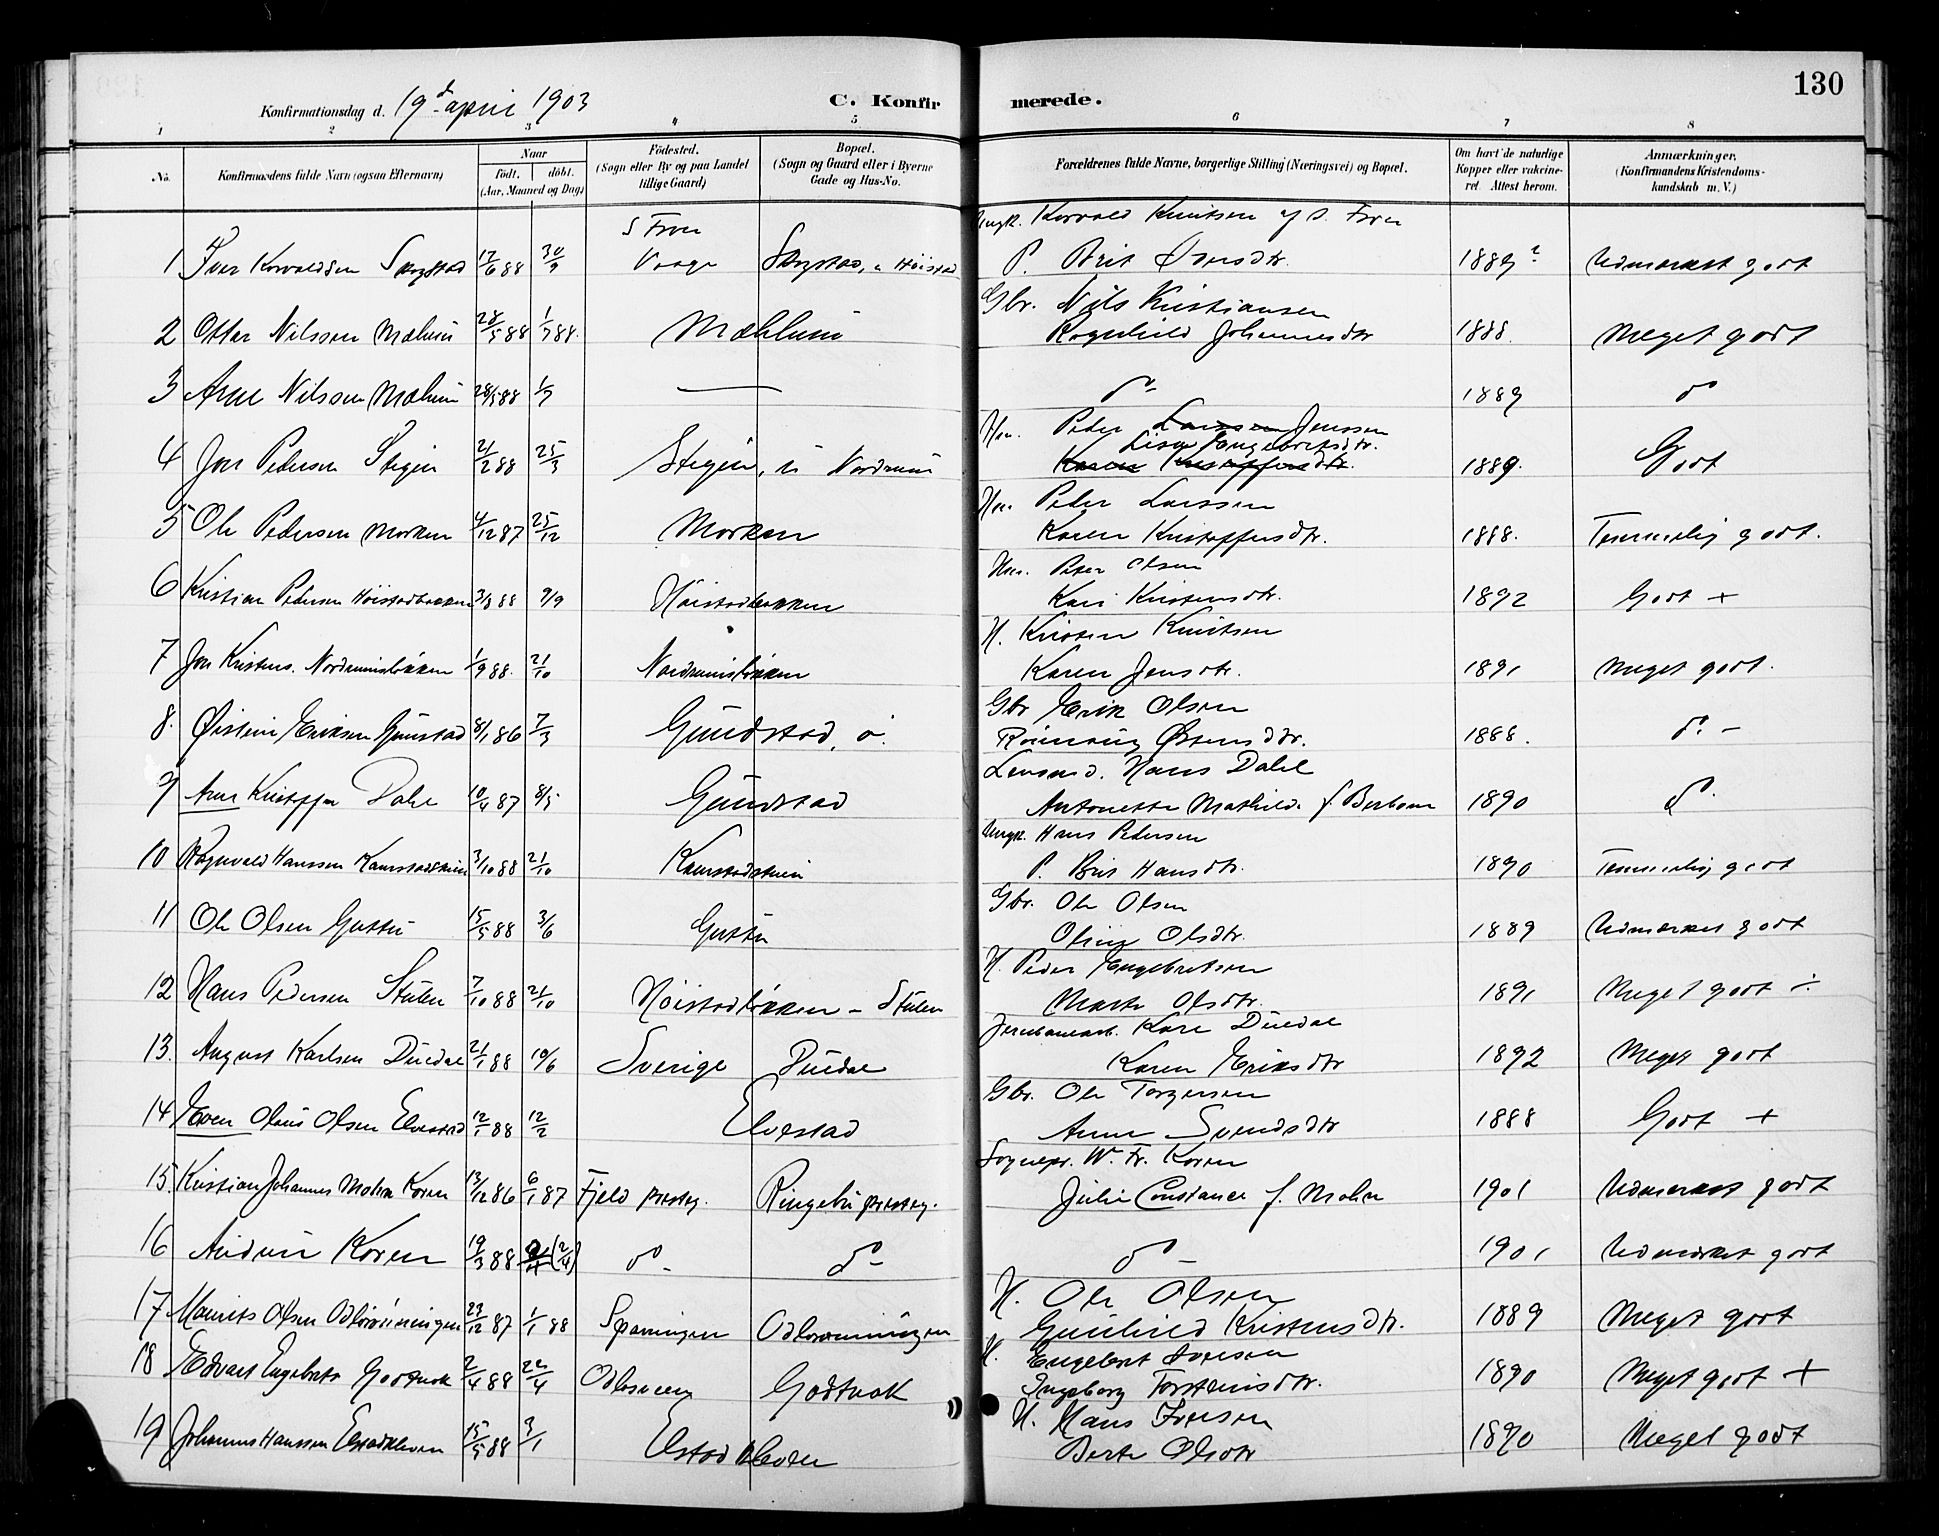 130
Konfirmationsdag d. 19d april 1903 C. Konfirmerede.
1 2 3 4 5 6 7 8
No. Konfirmandens fulde Navn (ogsaa Efternavn) Naar Födested. Bopæl. Forældrenes fulde Navne, borgerlige Stilling (Næringsvei) og Bopæl. Om havt de naturlige Anmærkninger,
födt. döbt. (Sogn eller By og paa Landet (Sogn og Gaard eller i Byerne Kopper eller vakcine- (Konfirmandens Kristendoms-
(Aar, Maaned og Dag) tillige Gaard) Gade og Hus-No. ret. Attest herom. kundskab m. V.)
S Fron Ungk. Korvald Knutsen af S. Fron
1 Iver Korvaldsen Skogstad 17/6 88 30/9 Vaage Skogstad, u Höistad P. Brit Iversdtr. 1889? Udmærket godt
Gbr. Nils Kristiansen
2 Ottar Nilssen Mælum 28/5 88 1/7 88. Mæhlum Ragnhild Johannesdtr 1888. Meget godt
3 Arne Nilssen Mælum 28/5 88 1/7 — do- 1889 do
Hm. Peder Larssen Jenssen
Lisa Engebretsdtr.
4 Jon Pedersen Stigen 21/2 88 25/3 Stigen, u Nordrum Karen Kristoffersdtr. 1889. Godt
Hm. Peder Larssen
5 Ole Pedersen Morken 4/12 87 25/12 Morken Karen Kristoffersdtr. 1888. Temmelig godt.
Hm. Peter Olsen
6 Kristian Pedersen Höistadbakken 3/8 88 9/9 Höistadbakken Kari Kristensdtr. 1892 Godt +
H. Kristen Knutsen
7 Jon Kristens. Nordrumsbakken 1/9 88. 21/10 Nordrumsbakken Karen Jensdtr. 1891 Meget godt.
Gbr Erik Olsen
8. Øistein Eriksen Gundstad 8/1 86 7/3 Gundstad, ö. Rönnaug Østensdtr. 1888. do. -
Lensmd. Hans Dahl
9 Arne Kristoffer Dahl 10/4 87 8/5 Gundstad Antonette Mathilde f. Berbom 1890 do.
Ungk. Hans Pedersen
10 Ragnvald Hanssen Kamstadstuen 3/10 88 21/10 Kamstadstuen P. Brit Hansdtr. 1890 Temmelig godt
Gbr. Ole Olsen
11 Ole Olsen Gutu 15/5 88 3/6 Olsdtr. 1889 Udmærket godt
H. Peder Engebretsen
12 Hans Pedersen Stulen 7/10 88 21/10 Höistadbakken - Stulen Marte Olsdtr. 1891 Meget godt ÷
Jernbanearb. Karl Duedal
13. August Karlsen Duedal 21/1 88 10/6 Sverige Duedal Karen Eriksdtr 1892 Meget godt
Gbr. Ole Torgersen
14 Even Olaus Olsen Elvestad 12/1 88 12/2 Elvestad Anne Svendsdtr 1888 Godt +
Sognepr. W. Fr. Koren
15. Kristian Johannes Mohn Koren 13/12 86 6/1 87 Fjeld præstegj. Ringebu præstegj. Julie Constance f. Mohn 1901 Udmærket godt
16 Koren 19/3 88 (2/4) do- do- do- 1901 Udmærket godt
H. Ole Olsen
17 Maurits Olsen Odlorönningen 29/12 87 1/1 88 Odlorönningen Gunhild Kristensdtr. 1889 Meget godt
H. Engebret Iversen
18 Edvart Engebrets Godtnok 2/4 88 22/4 Godtnok Ingeborg Torstensdtr. 1890 Meget godt +
H. Hans Iversen
19 Johannes Hanssen Elstadkleven 15/5 88 3/1 Elstadkleven Berte Olsdtr 1890 Meget godt